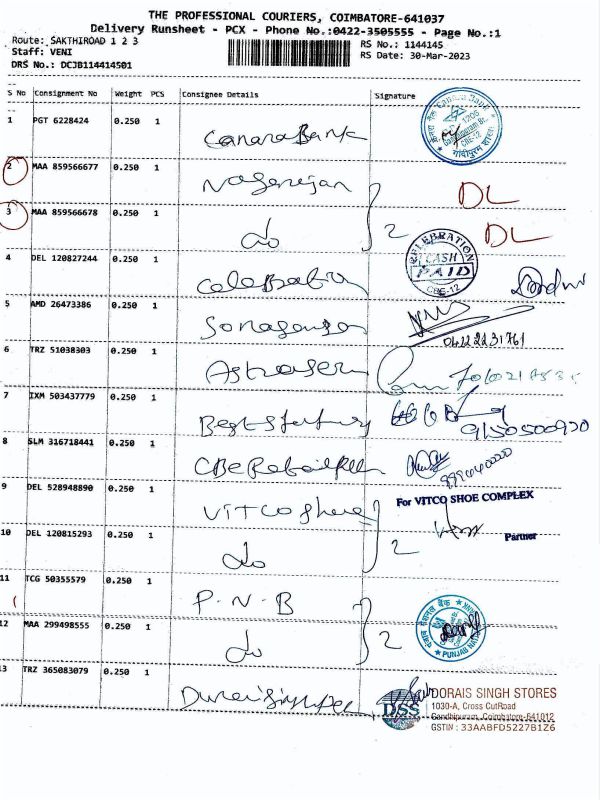 THE PROFESSIONAL COURIERS, COIMBATORE-641037
Delivery Runsheet - PCX - Phone No.:0422-3505555 - Page No.:1
Route: SAKTHIROAD 1 2 3
Staff: VENI
DRS No.: DCJB114414501
RS No.: 1144145
RS Date: 30-Mar-2023
S No Consignment No Weight PCS Consignee Details Signature
1 PGT 6228424 0.250 1 Canara Bank
2 MAA 859566677 0.250 1 Nagarajan DL
3 MAA 859566678 0.250 1 do 2 DL
4 DEL 120827244 0.250 1 CELEBRATION CASH PAID CBE-12
5 AMD 26473386 0.250 1
6 TRZ 51038303 0.250 1
7 IXM 503437779 0.250 1 9150500920
8 SLM 316718441 0.250 1
9 DEL 528948890 0.250 1 Vitco Shoes For VITCO SHOE COMPLEX
10 DEL 120815293 0.250 1 do 2 Partner
11 TCG 50355579 0.250 1 P.N.B
12 MAA 299498555 0.250 1 do 2
13 TRZ 365083079 0.250 1
DSS DORAIS SINGH STORES
1030-A, Cross CutRoad
Gandhipuram, Coimbatore-641012
GSTIN : 33AABFD5227B1Z6